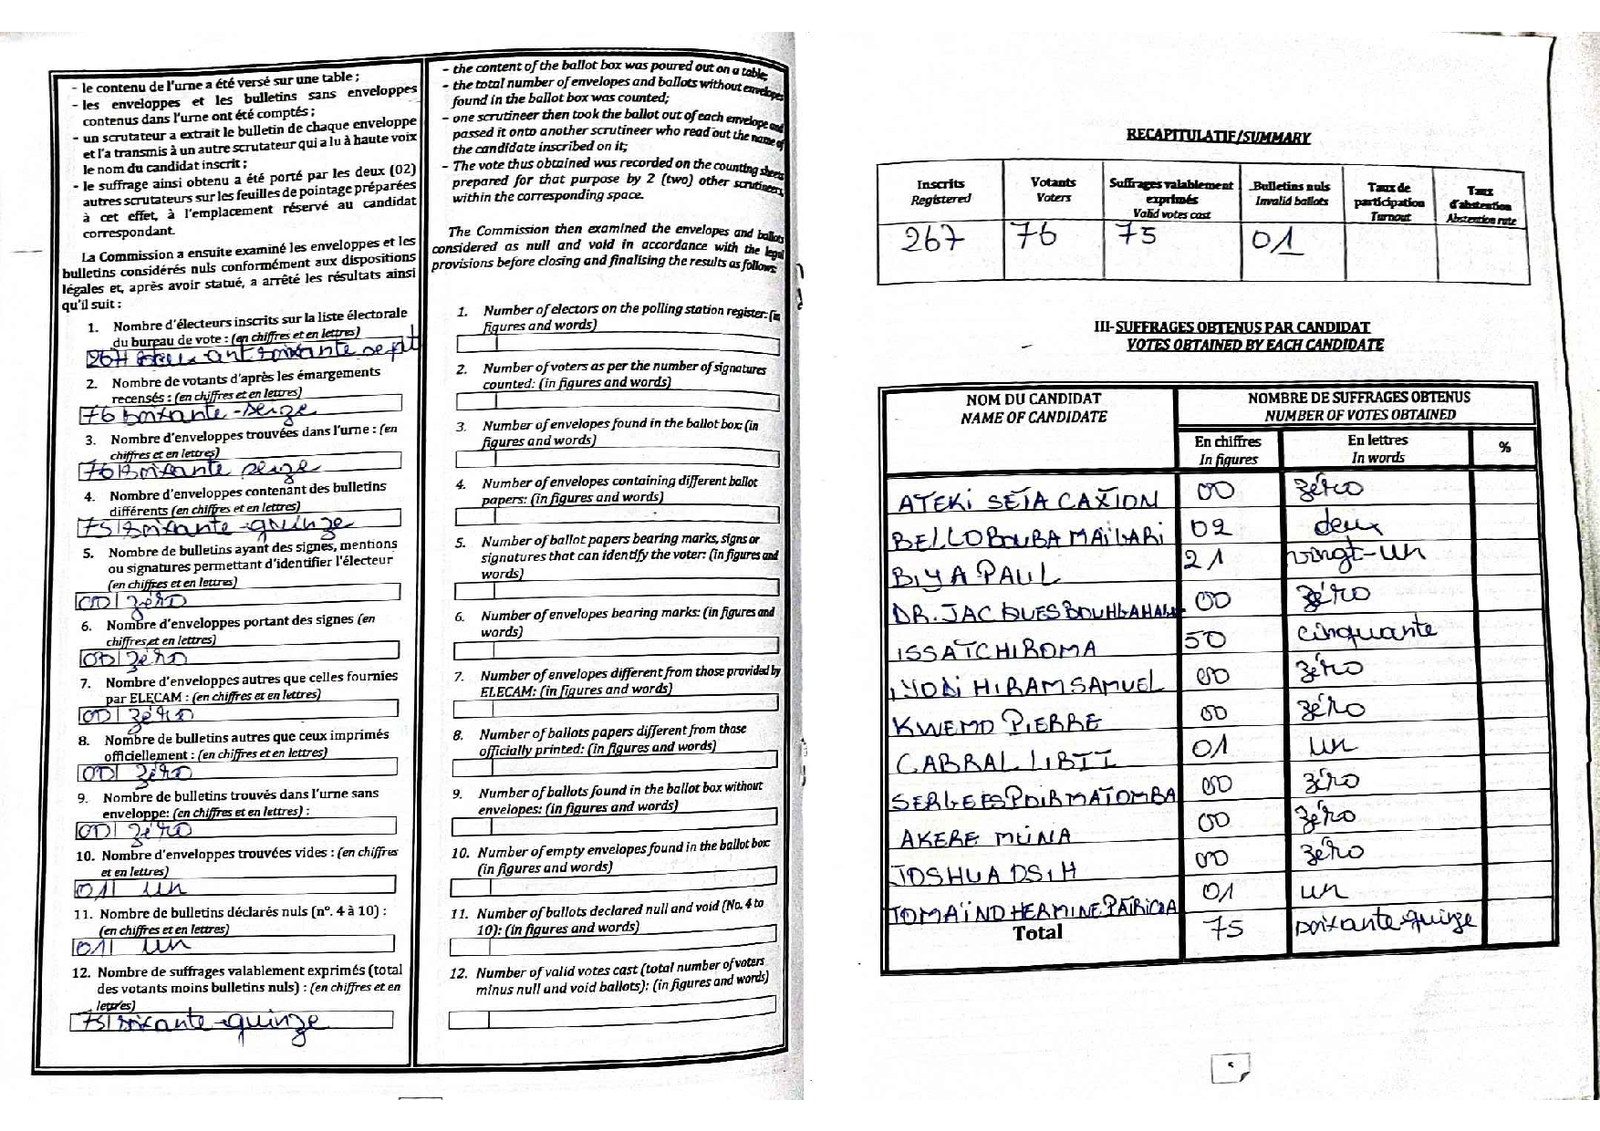 - le contenu de l'urne a été versé sur une table ;
- les enveloppes et les bulletins sans enveloppes
contenus dans l'urne ont été comptés ;
- un scrutateur a extrait le bulletin de chaque enveloppe
et l'a transmis à un autre scrutateur qui a lu à haute voix
le nom du candidat inscrit ;
- le suffrage ainsi obtenu a été porté par les deux (02)
autres scrutateurs sur les feuilles de pointage préparées
à cet effet, à l'emplacement réservé au candidat
correspondant.
La Commission a ensuite examiné les enveloppes et les
bulletins considérés nuls conformément aux dispositions
légales et, après avoir statué, a arrêté les résultats ainsi
qu'il suit :
1. Nombre d'électeurs inscrits sur la liste électorale
du bureau de vote : (en chiffres et en lettres)
267 soixante sept
2. Nombre de votants d'après les émargements
recensés : (en chiffres et en lettres)
76 soixante-seize
3. Nombre d'enveloppes trouvées dans l'urne : (en
chiffres et en lettres)
76 soixante seize
4. Nombre d'enveloppes contenant des bulletins
différents (en chiffres et en lettres)
75 soixante-quinze
5. Nombre de bulletins ayant des signes, mentions
ou signatures permettant d'identifier l'électeur
(en chiffres et en lettres)
00 zéro
6. Nombre d'enveloppes portant des signes (en
chiffres et en lettres)
00 zéro
7. Nombre d'enveloppes autres que celles fournies
par ELECAM : (en chiffres et en lettres)
00 zéro
8. Nombre de bulletins autres que ceux imprimés
officiellement : (en chiffres et en lettres)
00 zéro
9. Nombre de bulletins trouvés dans l'urne sans
enveloppe: (en chiffres et en lettres) :
00 zéro
10. Nombre d'enveloppes trouvées vides : (en chiffres
et en lettres)
01 un
11. Nombre de bulletins déclarés nuls (n°. 4 à 10) :
(en chiffres et en lettres)
01 un
12. Nombre de suffrages valablement exprimés (total
des votants moins bulletins nuls) : (en chiffres et en
lettres)
75 soixante-quinze
- the content of the ballot box was poured out on a table;
- the total number of envelopes and ballots without envelopes
found in the ballot box was counted;
- one scrutineer then took the ballot out of each envelope and
passed it onto another scrutineer who read out the name of
the candidate inscribed on it;
- The vote thus obtained was recorded on the counting sheets
prepared for that purpose by 2 (two) other scrutineers,
within the corresponding space.
The Commission then examined the envelopes and ballots
considered as null and void in accordance with the legal
provisions before closing and finalising the results as follows:
1. Number of electors on the polling station register: (in
figures and words)
2. Number of voters as per the number of signatures
counted: (in figures and words)
3. Number of envelopes found in the ballot box: (in
figures and words)
4. Number of envelopes containing different ballot
papers: (in figures and words)
5. Number of ballot papers bearing marks, signs or
signatures that can identify the voter: (in figures and
words)
6. Number of envelopes bearing marks: (in figures and
words)
7. Number of envelopes different from those provided by
ELECAM: (in figures and words)
8. Number of ballots papers different from those
officially printed: (in figures and words)
9. Number of ballots found in the ballot box without
envelopes: (in figures and words)
10. Number of empty envelopes found in the ballot box:
(in figures and words)
11. Number of ballots declared null and void (No. 4 to
10): (in figures and words)
12. Number of valid votes cast (total number of voters
minus null and void ballots): (in figures and words)
RECAPITULATIF/SUMMARY
Inscrits Registered | Votants Voters | Suffrages valablement exprimés Valid votes cast | Bulletins nuls Invalid ballots | Taux de participation Turnout | Taux d'abstention Abstention rate
267 76 75 01
III-SUFFRAGES OBTENUS PAR CANDIDAT
VOTES OBTAINED BY EACH CANDIDATE
NOM DU CANDIDAT NOMBRE DE SUFFRAGES OBTENUS
NAME OF CANDIDATE NUMBER OF VOTES OBTAINED
En chiffres En lettres %
In figures In words
ATEKI SETA CAXTON 00 zéro
BELLO BOUBA MAIGARI 02 deux
BIYA PAUL 21 vingt-un
DR. JACQUES BOUHGAHA 00 zéro
ISSA TCHIROMA 50 cinquante
IYODI HIRAM SAMUEL 00 zéro
KWEMO PIERRE 00 zéro
CABRAL LIBII 01 un
SERGE ESPOIR MATOMBA 00 zéro
AKERE MUNA 00 zéro
JOSHUA OSIH 00 zéro
TOMAÏNO HERMINE PATRICIA 01 un
Total 75 soixante-quinze